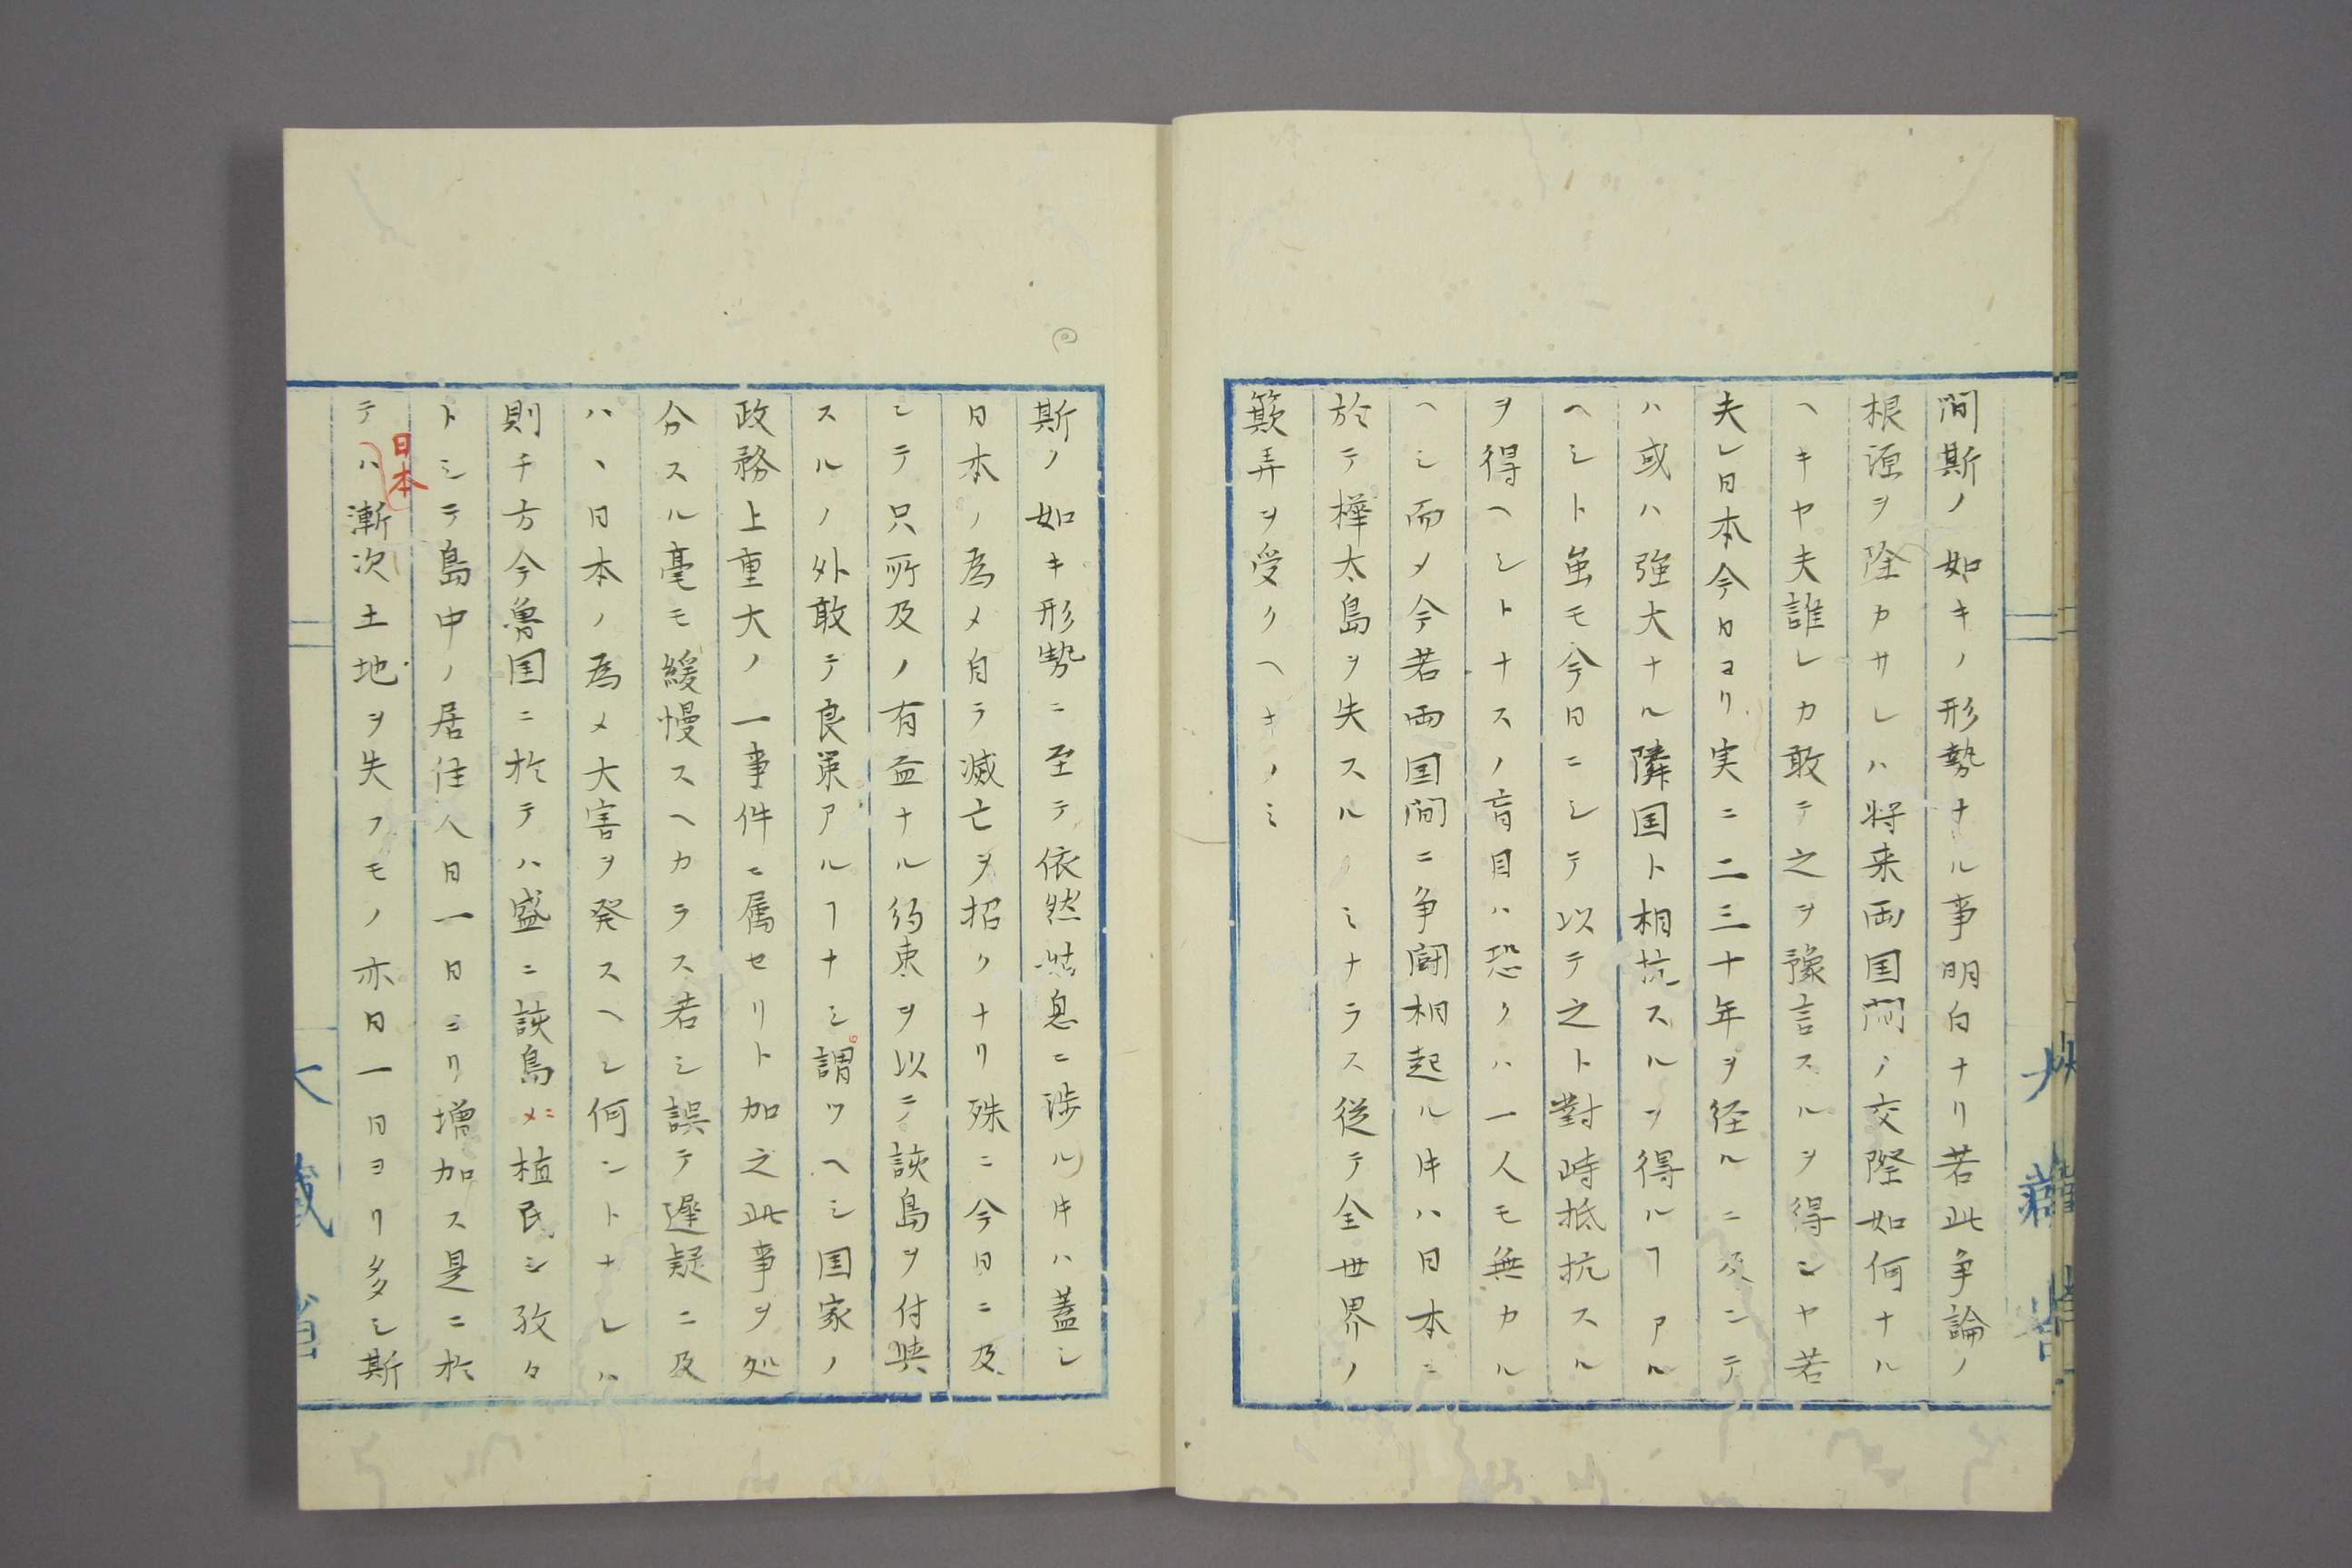 間斯ノ如キノ形勢ナル事明白ナリ若此争論ノ
根源ヲ除カサレハ将来両国間ノ交際如何ナル
ヘキヤ夫誰レカ敢テ之ヲ豫言スルヲ得ンヤ若
夫レ日本今日ヨリ実ニ二三十年ヲ径ルニ及ンテ
ハ或ハ強大ナル隣国ト相抗スルヲ得ルヿアル
ヘシト虽モ今日ニシテ以テ之ト對峙抵抗スル
ヲ得ヘシトナスノ盲目ハ恐クハ一人モ無カル
ヘシ而メ今若両国間ニ争闘相起ル𪜈ハ日本ニ
於テ樺太島ヲ失スルノミナラス従テ全世界ノ
欺弄ヲ受クヘキノミ
斯ノ如キ形勢ニ至テ依然姑息ニ渉ル𪜈ハ蓋シ
日本ノ為メ自ラ滅亡ヲ招クナリ殊ニ今日ニ及
シテ只所及ノ有益ナル約束ヲ以ニノ該島ヲ付與
スルノ外敢テ良策アルヿナシ謂ツヘシ国家ノ
政務上重大ノ一事件ニ属セリト加之此事ヲ処
分スル毫モ緩慢スヘカラス若シ誤テ遅疑ニ及
ハヽ日本ノ為メ大害ヲ発スヘシ何ントナレハ
則チ方今魯国ニ於テハ盛ニ該島ニ植民シ孜々
トシテ島中ノ居住人日一日ヨリ増加ス是ニ於
日本
テハ漸次土地ヲ失フモノ亦日一日ヨリ多シ斯
大藏省